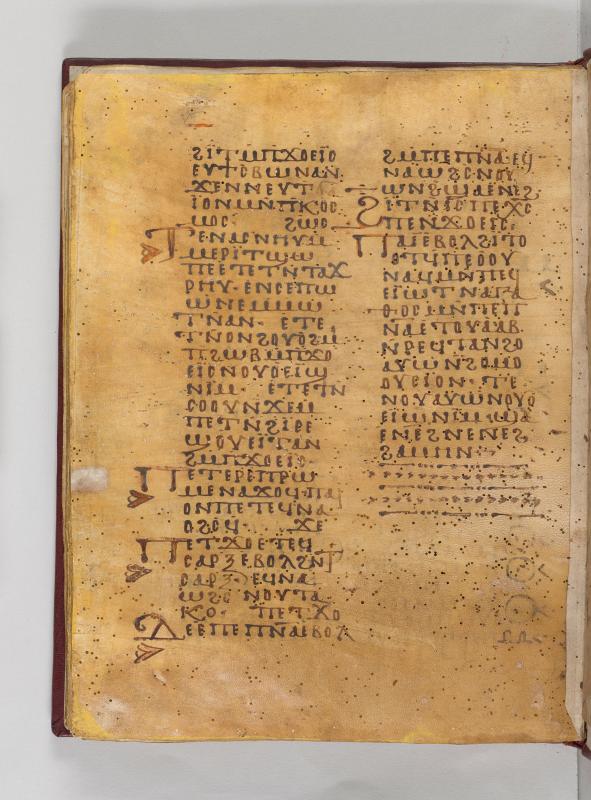 ϩⲓⲧⲙⲡϫⲟⲉⲓⲥ
ϫⲉⲛⲛⲉⲩⲧ
ϣⲟⲥ ϩⲱⲥ
ⲧⲉⲛⲁⲥⲛⲏⲩⲙ
ⲙⲉⲣⲓⲧϣⲱ
ⲡⲉⲉⲧⲉⲧⲛⲧⲁϫ
ⲣⲏⲩ· ⲉⲛⲥⲉⲡⲱ
ⲱⲛⲉⲙⲙⲱ
ⲧⲛⲁⲛ· ⲉⲧⲉ
ⲧⲛⲟⲛϩⲟⲩⲟϩⲙ
ⲡϩⲱⲃⲙⲡϫⲟ
ⲉⲓⲥⲛⲟⲩⲟⲉⲓϣ
ⲛⲓⲙ· ⲉⲧⲉⲧⲛ
ⲥⲟⲟⲩⲛϫⲉⲙ
ⲡⲉⲧⲛϩⲓⲥⲉ
ϣⲟⲩⲉⲓⲧⲁⲛ
ϩⲙⲡϫⲟⲉⲓⲥ·
ⲡⲉⲧⲉⲣⲉⲡⲣⲱ
ⲙⲉⲛⲁϫⲟϥ·ⲡⲁⲓ
ⲟⲛⲡⲉⲧⲉϥⲛⲁ
ⲟϩⲥϥ· ϫⲉ
ⲡⲉⲧϫⲟⲉⲧⲉϥ
ⲥⲁⲣⲝⲉⲃⲟⲗϩⲛⲧ
ⲥⲁⲣⲝ·ⲉϥⲛⲁ
ⲱϩⲥ ⲛⲟⲩⲧⲁ
ⲕⲟ· ⲡⲉⲧϫⲟ
ⲇⲉⲉⲡⲉⲡⲛⲁⲉⲃⲟⲗ
ϩⲙⲡⲉⲡⲛⲁ·ⲉϥ
ⲛⲁⲱϩⲥⲛⲟⲩ
ⲱⲛϩϣⲁⲉⲛⲉϩ
ϩⲓⲧⲛⲓⲥⲡⲉⲭⲥ
ⲡⲉⲛϫⲟⲉⲓⲥ·
ⲡⲁⲓⲉⲃⲟⲗϩⲓⲧⲟ
ⲟⲧϥⲡⲉⲟⲟⲩ
ⲛⲁϥⲙⲛⲡⲉϥ
ⲉⲓⲱⲧⲛⲁⲅⲁ
ⲑⲟⲥⲙⲛⲡⲉⲡⲛⲁ
ⲉⲧⲟⲩⲁⲁⲃ·
ⲛⲣⲉϥⲧⲁⲛϩⲟ
ⲁⲩⲱⲛϩⲟⲙⲟ
ⲟⲩⲥⲓⲟⲛ· ⲧⲉ
ⲛⲟⲩⲁⲩⲱⲛⲟⲩⲟ
ⲉⲓϣⲛⲓⲙ·ϣⲁ
ⲉⲛⲉϩⲛⲉⲛⲉϩ
ϩⲁⲙⲏⲛ